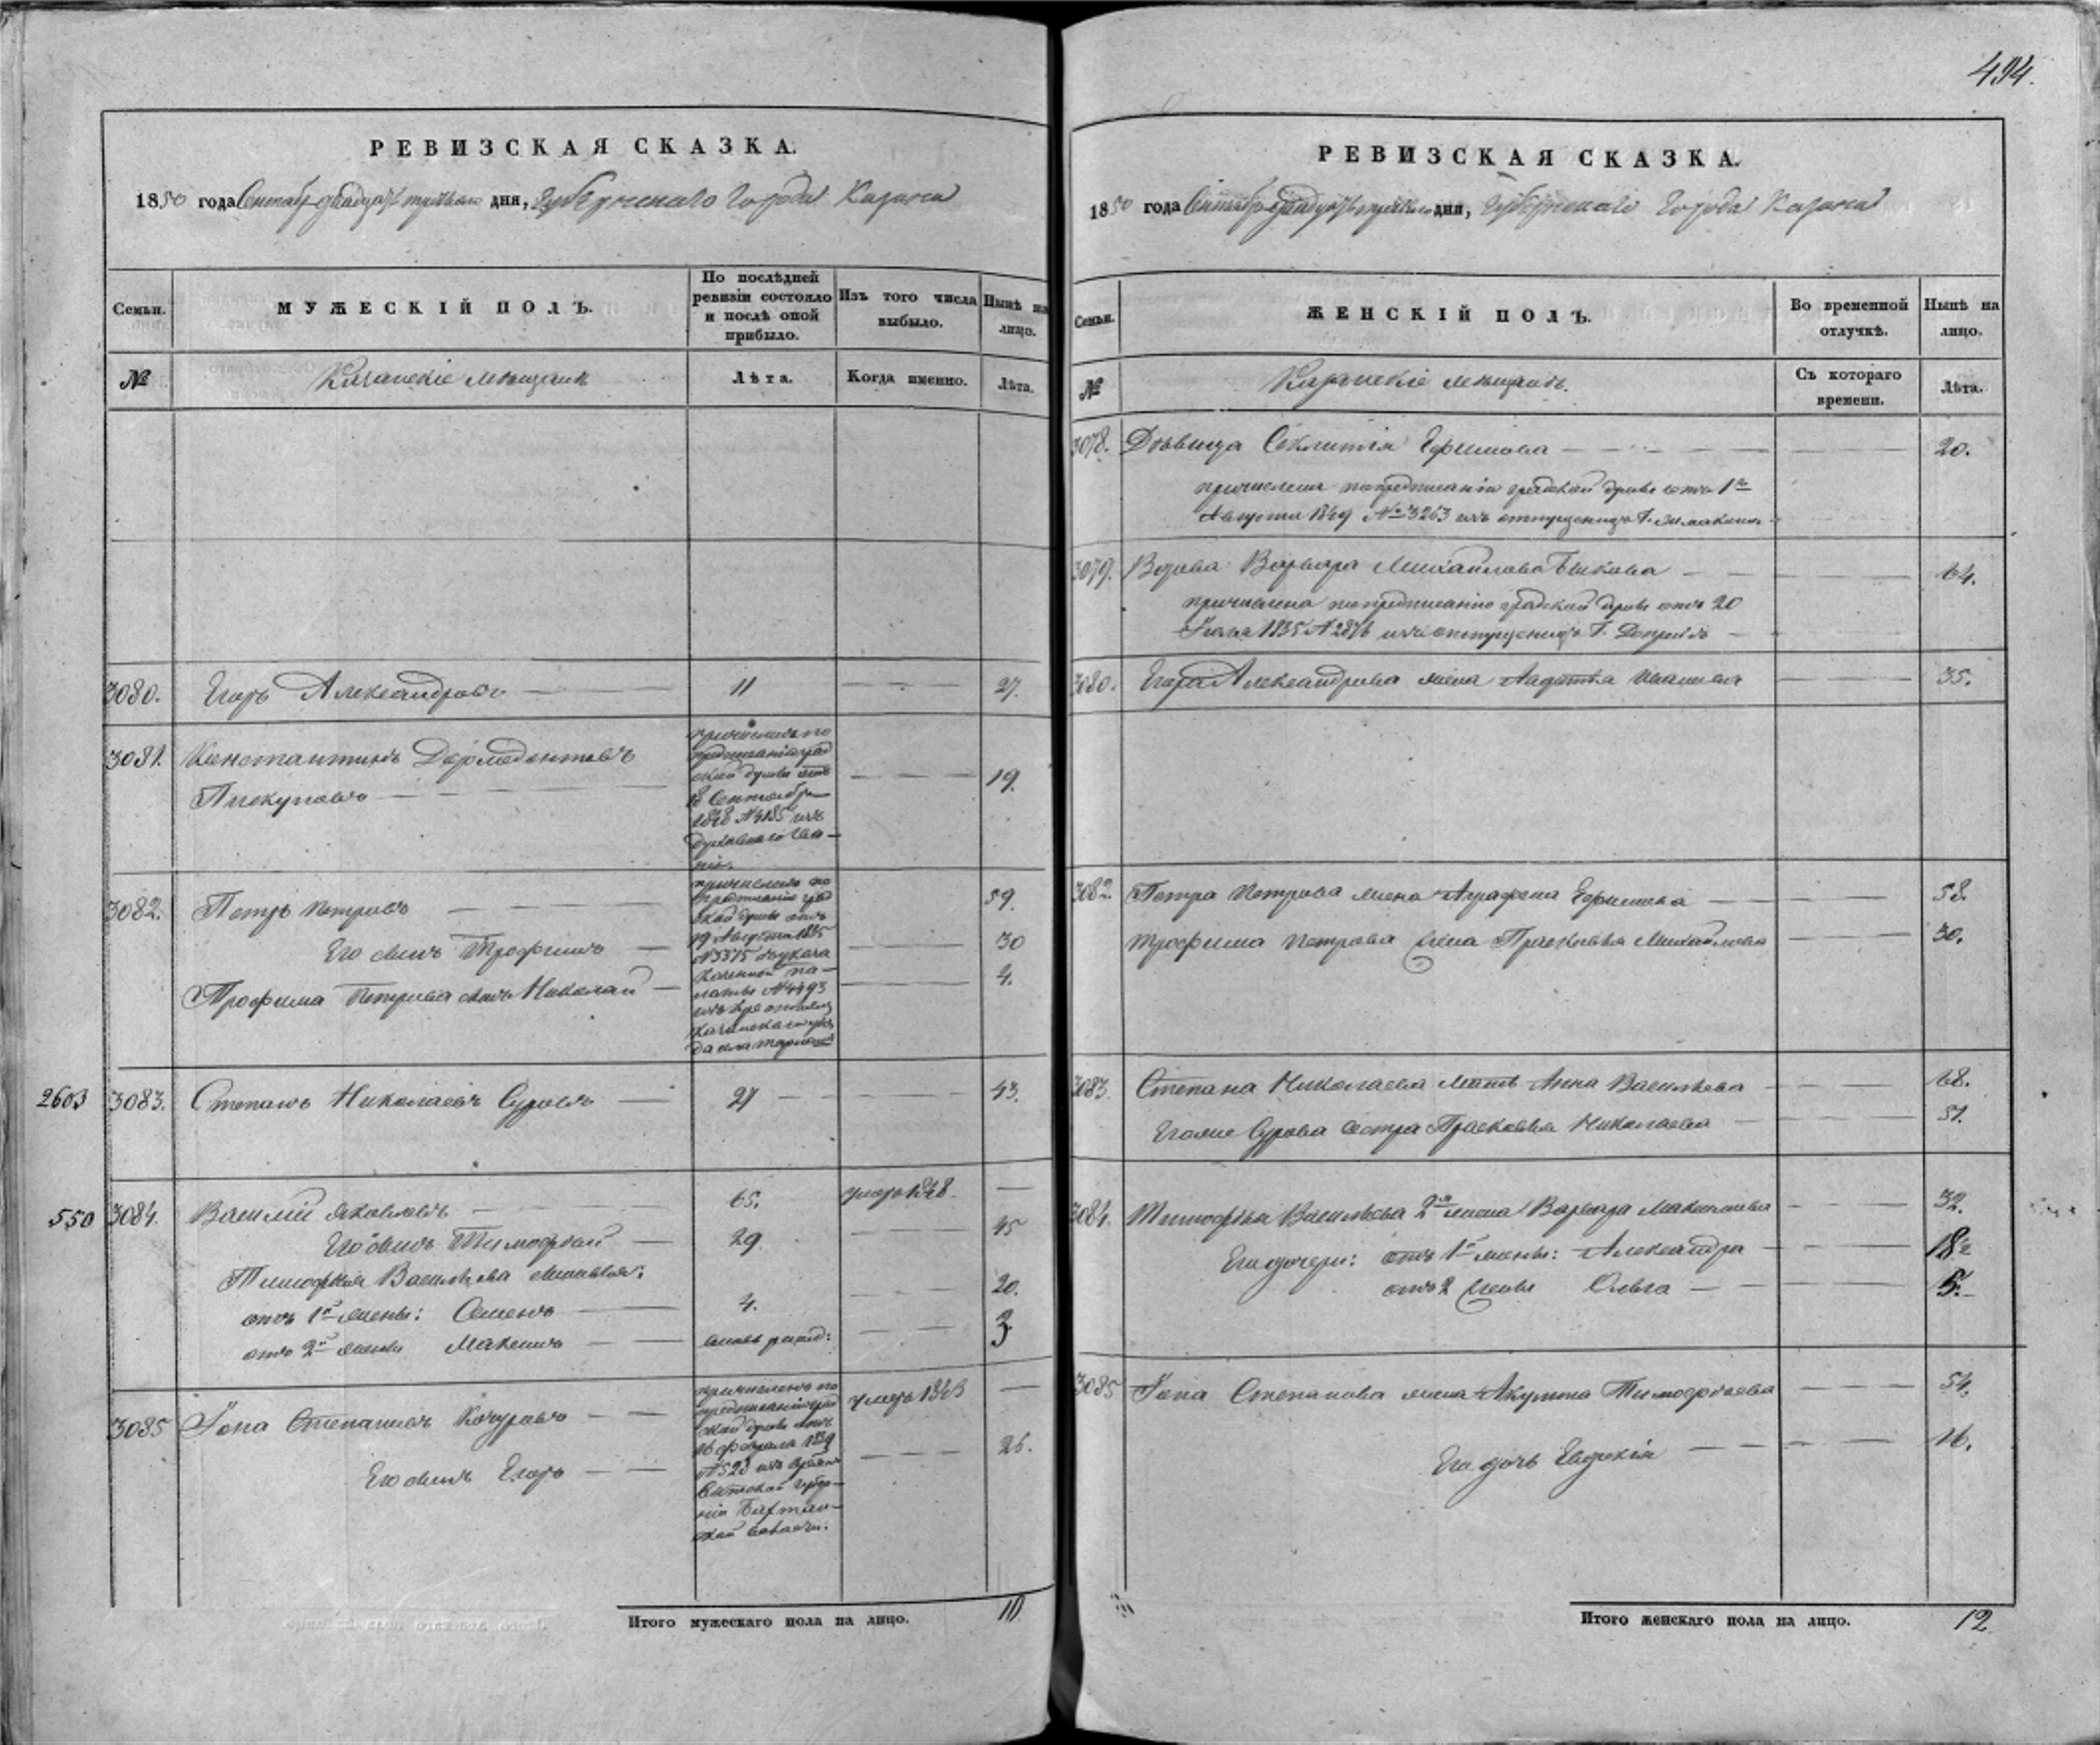 РЕВИЗСКАЯ СКАЗКА.
1850 года Сентября двадцать третьяго дня, Губернскаго Города Казани
Семьи.
МУЖЕСКІЙ ПОЛЪ.
По послѣдней
ревизіи состояло
и послѣ оной
прибыло.
Изъ того числа
выбыло.
Нынѣ на
лицо.
№
Казанскіе мѣщане
Лѣта.
Когда именно.
Лѣта.
3080. Егоръ Александровъ 11 27.
3081. Константинъ Дормедонтовъ
19.
причисленъ по
предписанію град
ской думы отъ
18 Сентября
1848 №4185 изъ
духовнаго зва-
нія.
3082. Петръ Петровъ 59.
Его сынъ Трофимъ 30
Трофима Петрова сынъ Николай 4.
причисленъ по
предписанію град
ской думы отъ
19 Августа 1835
№3375
казенной па-
латы №4493
изъ крестьянъ
Казанскаго уѣз
да села
2603 3083. Степанъ Николаевъ Суровъ 27 43.
550 3084. Василій Яковлевъ 65. умеръ 1848
Его сынъ Тимофей 29 45
Тимофея Васильева сыновья:
отъ 1й жены: Семенъ 4. 20.
отъ 2й жены Максимъ вновь рожд: 3
3085 Іона Степановъ Кочуровъ умеръ 1843
Его сынъ Егоръ 26.
причисленъ по
предписанію град
ской думы отъ
16 февраля 1839
№523 изъ
Вятской губер-
ніи
Итого мужескаго пола на лицо. 10
494.
РЕВИЗСКАЯ СКАЗКА.
1850 года Сентября двадцать третьяго дня, Губернскаго Города Казани
Семьи.
ЖЕНСКІЙ ПОЛЪ.
Во временной
отлучкѣ.
Нынѣ на
лицо.
№
Казанскіе мѣщане.
Съ котораго
времени.
Лѣта.
3078. Дѣвица Секлитія Ефимова 20.
причислена по предписанію градской думы отъ 1го
Августа 1849 №3263 изъ отпущенницъ Г.
3079. Вдова Варвара Михайлова Быкова 64.
причислена по предписанію градской думы отъ 20
Іюля 1835 №2876 изъ отпущенницъ Г.
3080. Егора Александрова жена Агафья Иванова 35.
3082. Петра Петрова жена Аграфена Ефимова 58.
Трофима Петрова жена Прасковья Михайлова 30.
3083 Степана Николаева мать Анна Васильева 68.
Его же Сурова сестра Прасковья Николаева 51.
3084. Тимофея Васильева 2я жена Варвара Максимова 32.
Его дочери: отъ 1й жены: Александра 18½
отъ 2 жены Ольга 5.
3085 Іона Степанова жена Акулина Тимофѣева 54.
Его дочь Евдокія 16.
Итого женскаго пола на лицо. 12